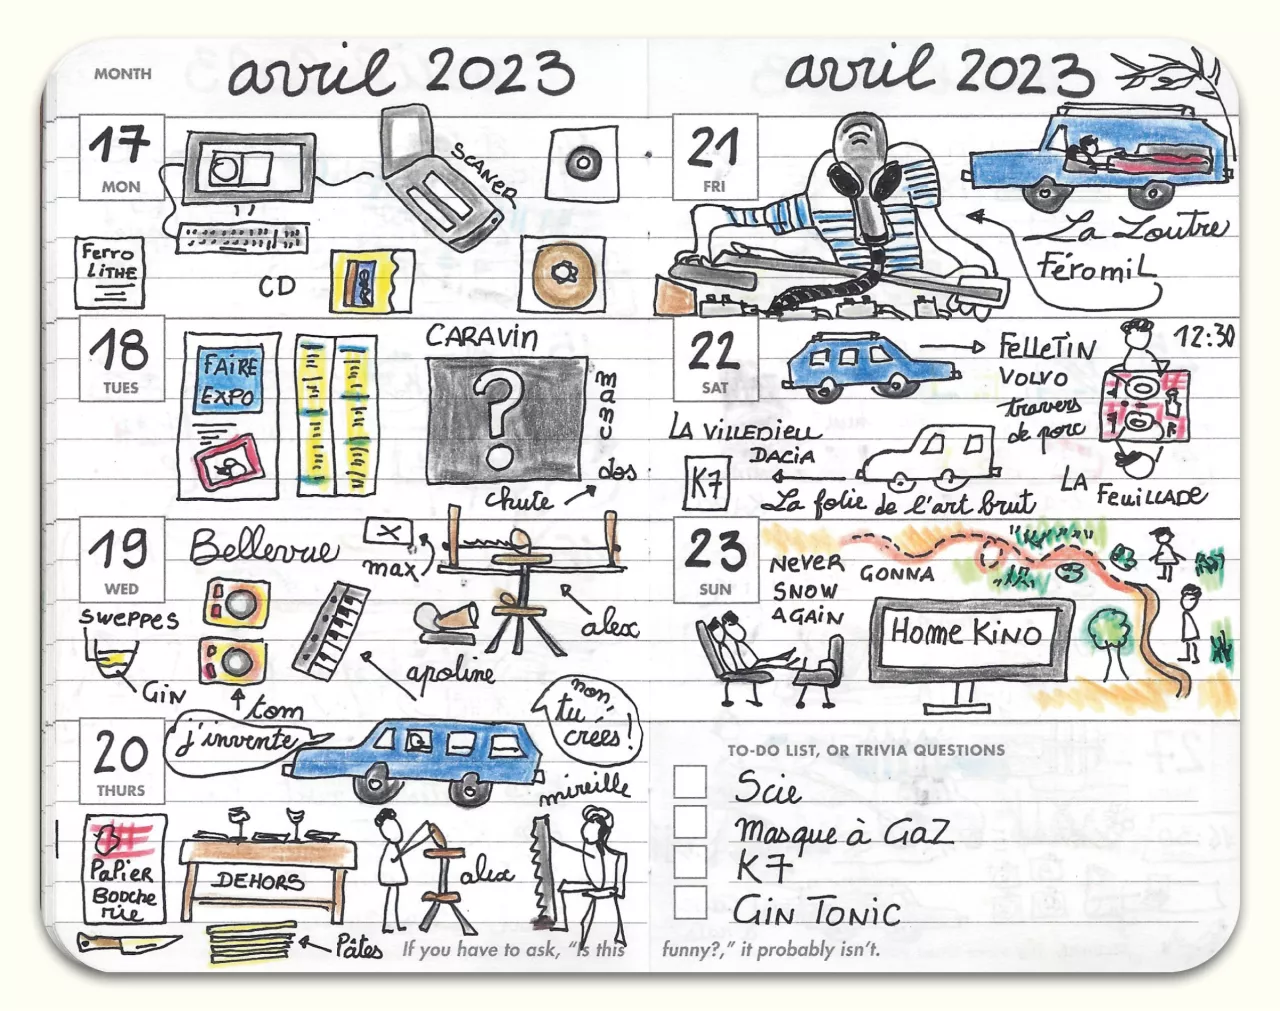 MONTH
avril 2023
17
MON
SCANER
Ferro
LiTHE
CD
18
TUES
FAiRE
EXPO
CARAVin
?
manu
dos
chute
19
WED
Bellevue
X
max
Sweppes
Gin
tom
apoline
alex
20
THURS
j'invente
non,
tu
crées!
mireille
PaPiER
Bouche
rie
DEHORS
alex
Pâtes
If you have to ask, "Is this
avril 2023
21
FRI
La Loutre
FéromiL
22
SAT
FeLLeTiN
VOLVO
travers
de porc
12:30
LA ViLLEDiEU
DACiA
K7
La folie de l'art brut
LA FeuiLLADe
23
SUN
NEVER
GONNA
SNOW
AGAiN
Home KiNO
TO-DO LIST, OR TRIVIA QUESTIONS
Scie
Masque à GaZ
K7
Gin Tonic
funny?," it probably isn't.